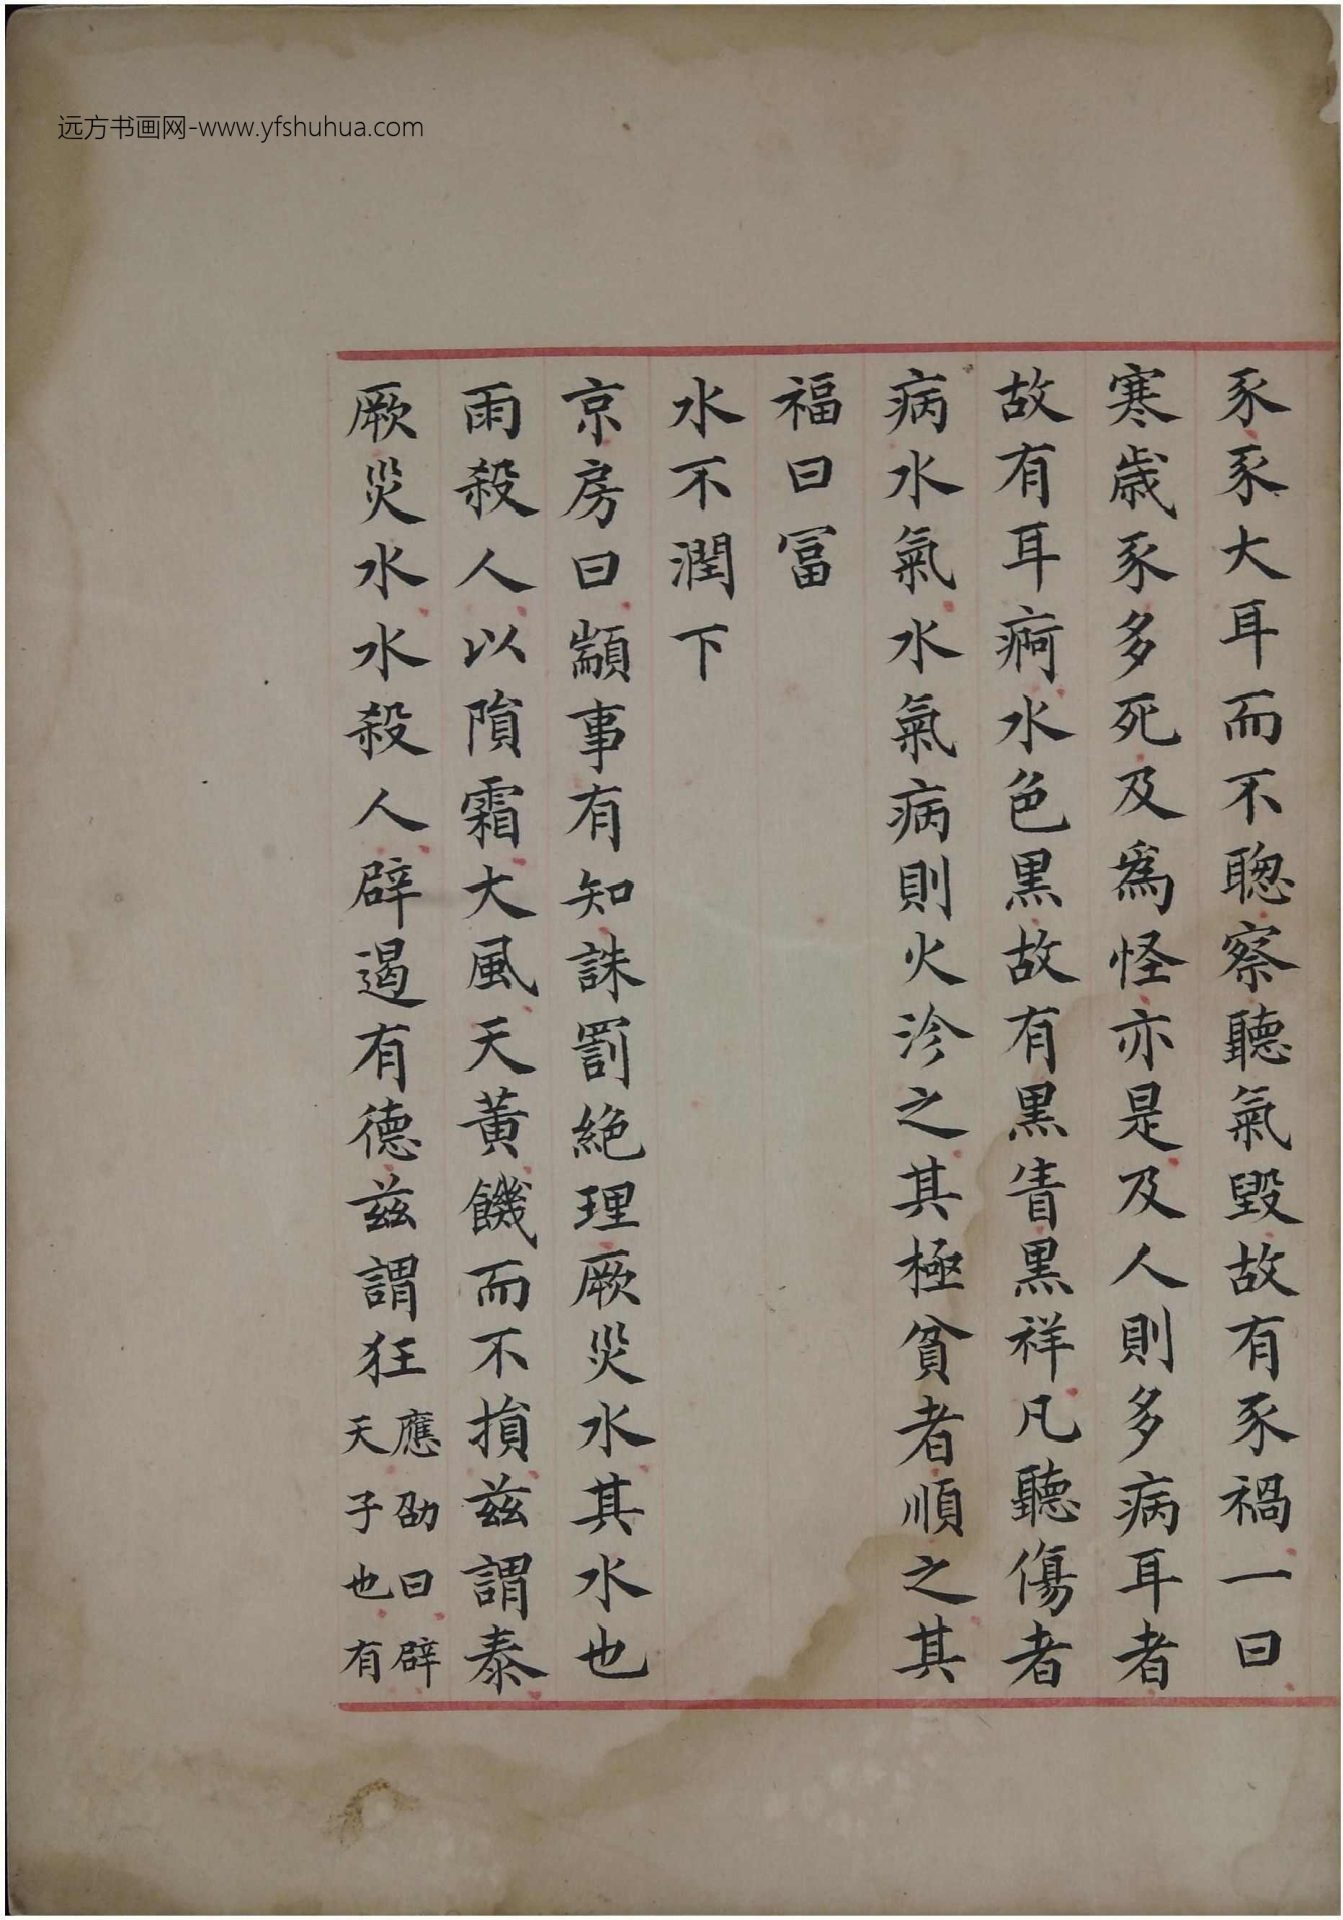 远方书画网-www.yfshuhua.com
豕豕大耳而不聦察聽氣毀故有豕禍一曰
寒歲豕多死及為怪亦是及人則多病耳者
故有耳痾水色黒故有黒眚黒祥凡聽傷者
病水氣水氣病則火沴之其極貧者順之其
福曰冨
水不潤下
京房曰顓事有知誅罰絶理厥災水其水也
雨殺人以隕霜大風天黃饑而不損兹謂泰
厥災水水殺人辟遏有德兹謂狂應劭曰辟
天子也有